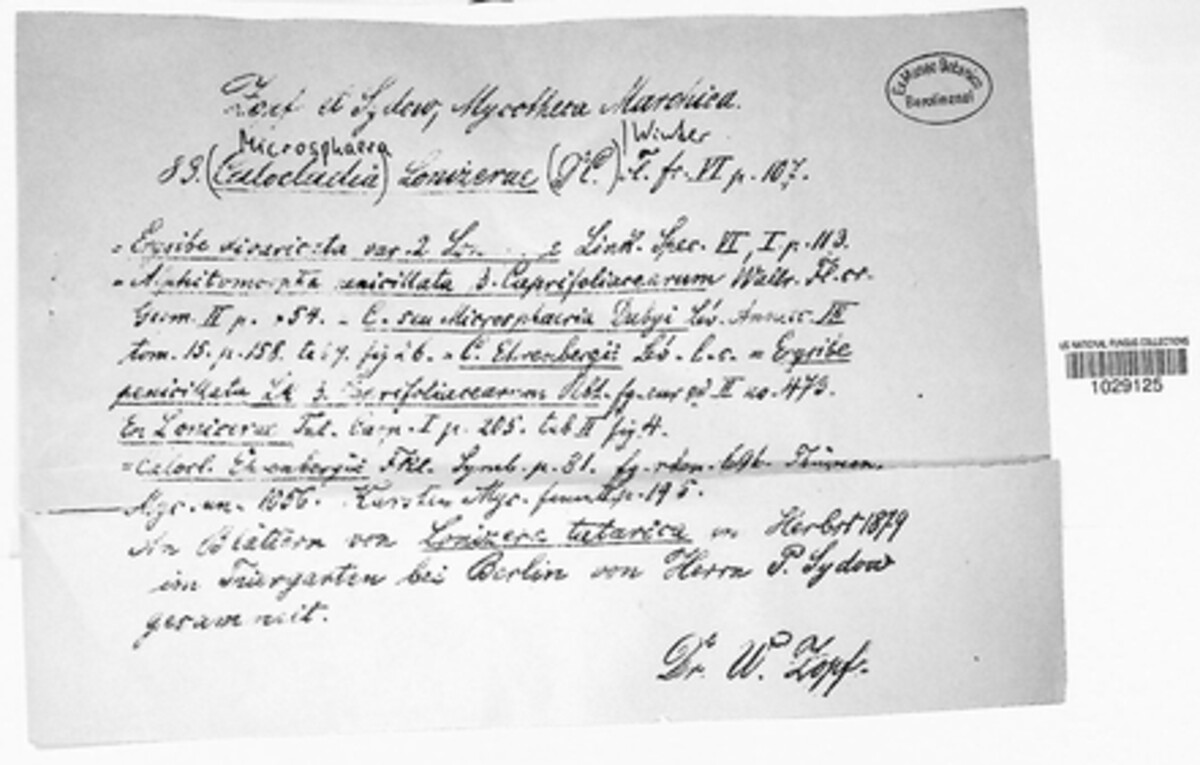 Ex Museo Botanico
Berolinensi
Zopf et Sydow, Mycotheca Marchica.
Microsphaera Winter
89. (Calocladia) Lonizerae (DC.) Fl. fr. VI p. 107.
= Erysibe divaricata var. 2 Link. Spec. VI, I p. 113.
= Alphitomorpha penicillata 3. Caprifoliacearum Wallr. Fl. cr.
Germ. II p. 754. - C. seu Microsphaeria Dubyi Lév. Ann. sc. III
tom. 15. p. 158. fig = C. Ehrenbergii Lév. l. c. = Erysibe
penicillata Lk 3. Caprifoliacearum Rbh. fg. eur ed II no. 473.
En Lonicerae Tul. Carp. I p. 205. tab II fig 4.
= Calocl. Ehrenbergii Fkl. Symb. p. 81. fg. rhen. 696. Thümen.
Myc. un. 1056. Karsten Myc. fenn II p. 195.
An Blättern von Lonizera tatarica im Herbst 1879
im Tiergarten bei Berlin von Herrn P. Sydow
gesammelt.
Dr. W. Zopf.
US NATIONAL FUNGUS COLLECTIONS
1029125